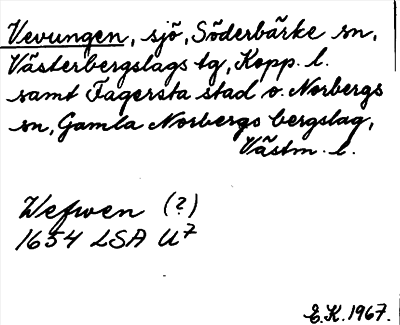 Vevungen, sjö, Söderbärke sn,
Västerbergslags tg, Kopp. l.
samt Fagersta stad o. Norbergs
sn, Gamla Norbergs bergslag,
Västm. l.
Wefwen (?)
1654 LSA U⁷
E.K. 1967.